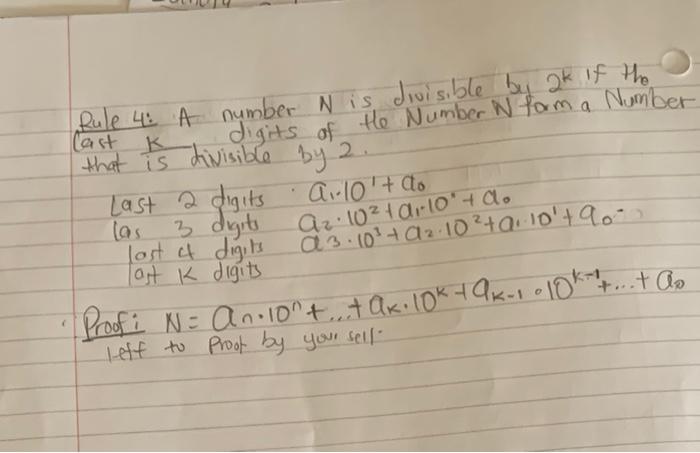 Rule 4: A number N is divisible by 2ᵏ if the
last K digits of the Number N form a Number
that is divisible by 2.
Last 2 digits a₁·10¹ + a₀
las 3 digits a₂·10² + a₁·10¹ + a₀
last 4 digits a₃·10³ + a₂·10² + a₁·10¹ + a₀
last K digits
Proof: N = aₙ·10ⁿ + ... + aₖ·10ᵏ + aₖ₋₁·10ᵏ⁻¹ + ... + a₀
Left to Proof by your self.